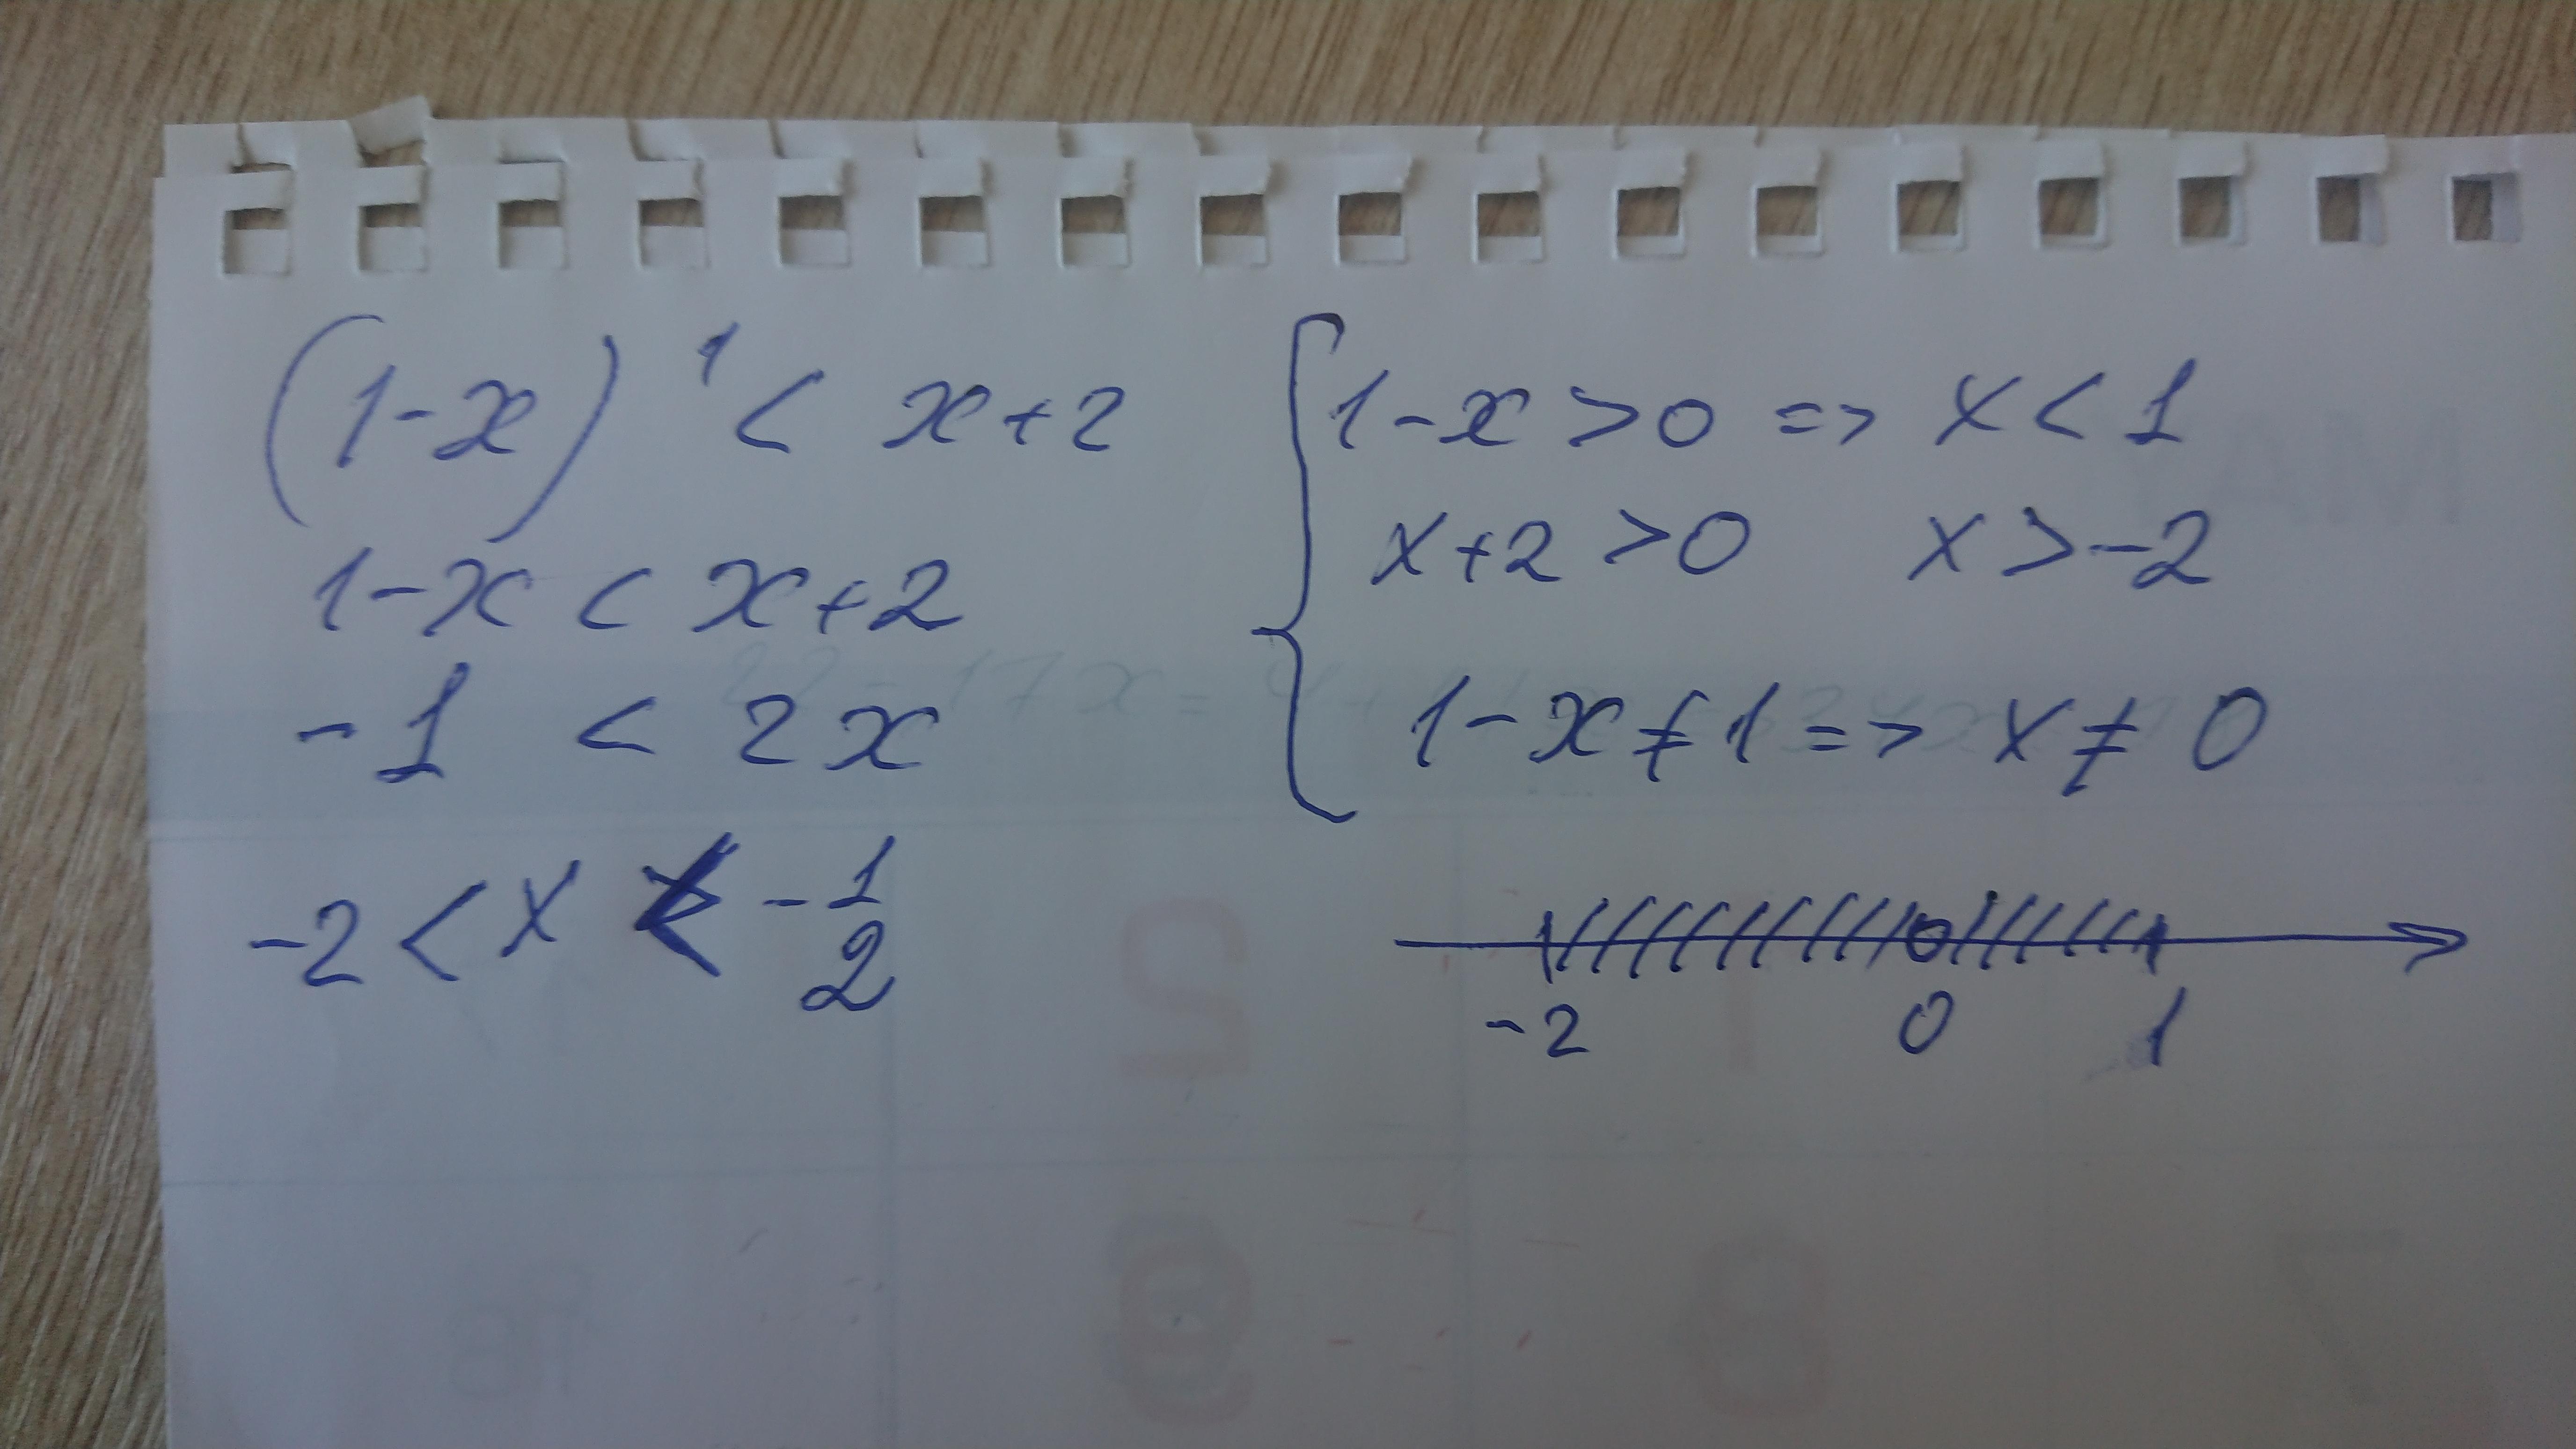 (1-x)¹ < x+2
1-x < x+2
-1 < 2x
-2 < x < -1/2
1-x > 0 => x < 1
x+2 > 0 x > -2
1-x ≠ 1 => x ≠ 0
-2 0 1